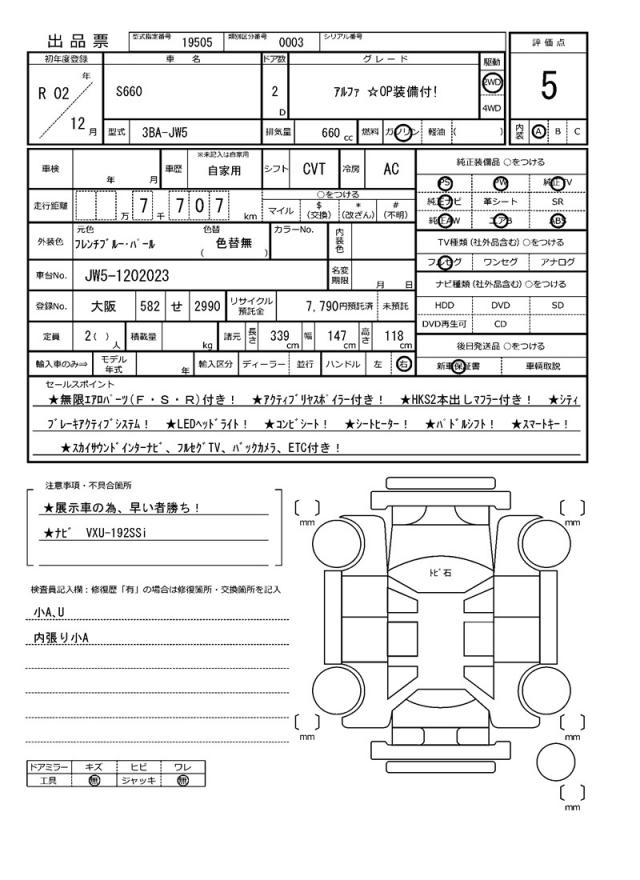 出品票 型式指定番号 19505 類別区分番号 0003 シリアル番号
初年度登録 車名 ドア数 グレード 駆動 評価点
R 02 年 12 月 S660 2 D アルファ ☆OP装備付! 2WD 4WD 5
型式 3BA-JW5 排気量 660 cc 燃料 ガソリン 軽油 ( ) 内装 A B C
車検 年 月 車歴 ※未記入は自家用 自家用 シフト CVT 冷房 AC
純正装備品 ○をつける
PS PW 純正TV
純正ナビ 革シート SR
純正AW エアB ABS
走行距離 万 7 千 7 0 7 km
○をつける
マイル $ (交換) * (改ざん) # (不明)
外装色 元色 フレンチブルー・パール 色替 ( 色替無 ) カラーNo. 内装色
TV種類 (社外品含む) ○をつける
フルセグ ワンセグ アナログ
車台No. JW5-1202023 名変期限 月 日
ナビ種類 (社外品含む) ○をつける
HDD DVD SD
DVD再生可 CD
登録No. 大阪 582 せ 2990 リサイクル預託金 7,790円預託済 未預託
定員 2( ) 人 積載量 kg 諸元 長さ 339 cm 幅 147 cm 高さ 118 cm
後日発送品 ○をつける
新車保証書 車輌取説
輸入車のみ⇒ モデル年式 年 輸入区分 ディーラー 並行 ハンドル 左 右
セールスポイント
★無限エアロパーツ(F・S・R)付き! ★アクティブリヤスポイラー付き! ★HKS2本出しマフラー付き! ★シティ
ブレーキアクティブシステム! ★LEDヘッドライト! ★コンビシート! ★シートヒーター! ★パドルシフト! ★スマートキー!
★スカイサウンドインターナビ、フルセグTV、バックカメラ、ETC付き!
注意事項・不具合箇所
★展示車の為、早い者勝ち!
★ナビ VXU-192SSi
検査員記入欄:修復歴「有」の場合は修復箇所・交換箇所を記入
小A、U
内張り小A
トビ石
mm
mm
mm
mm
mm
ドアミラー キズ ヒビ ワレ
工具 無 ジャッキ 無